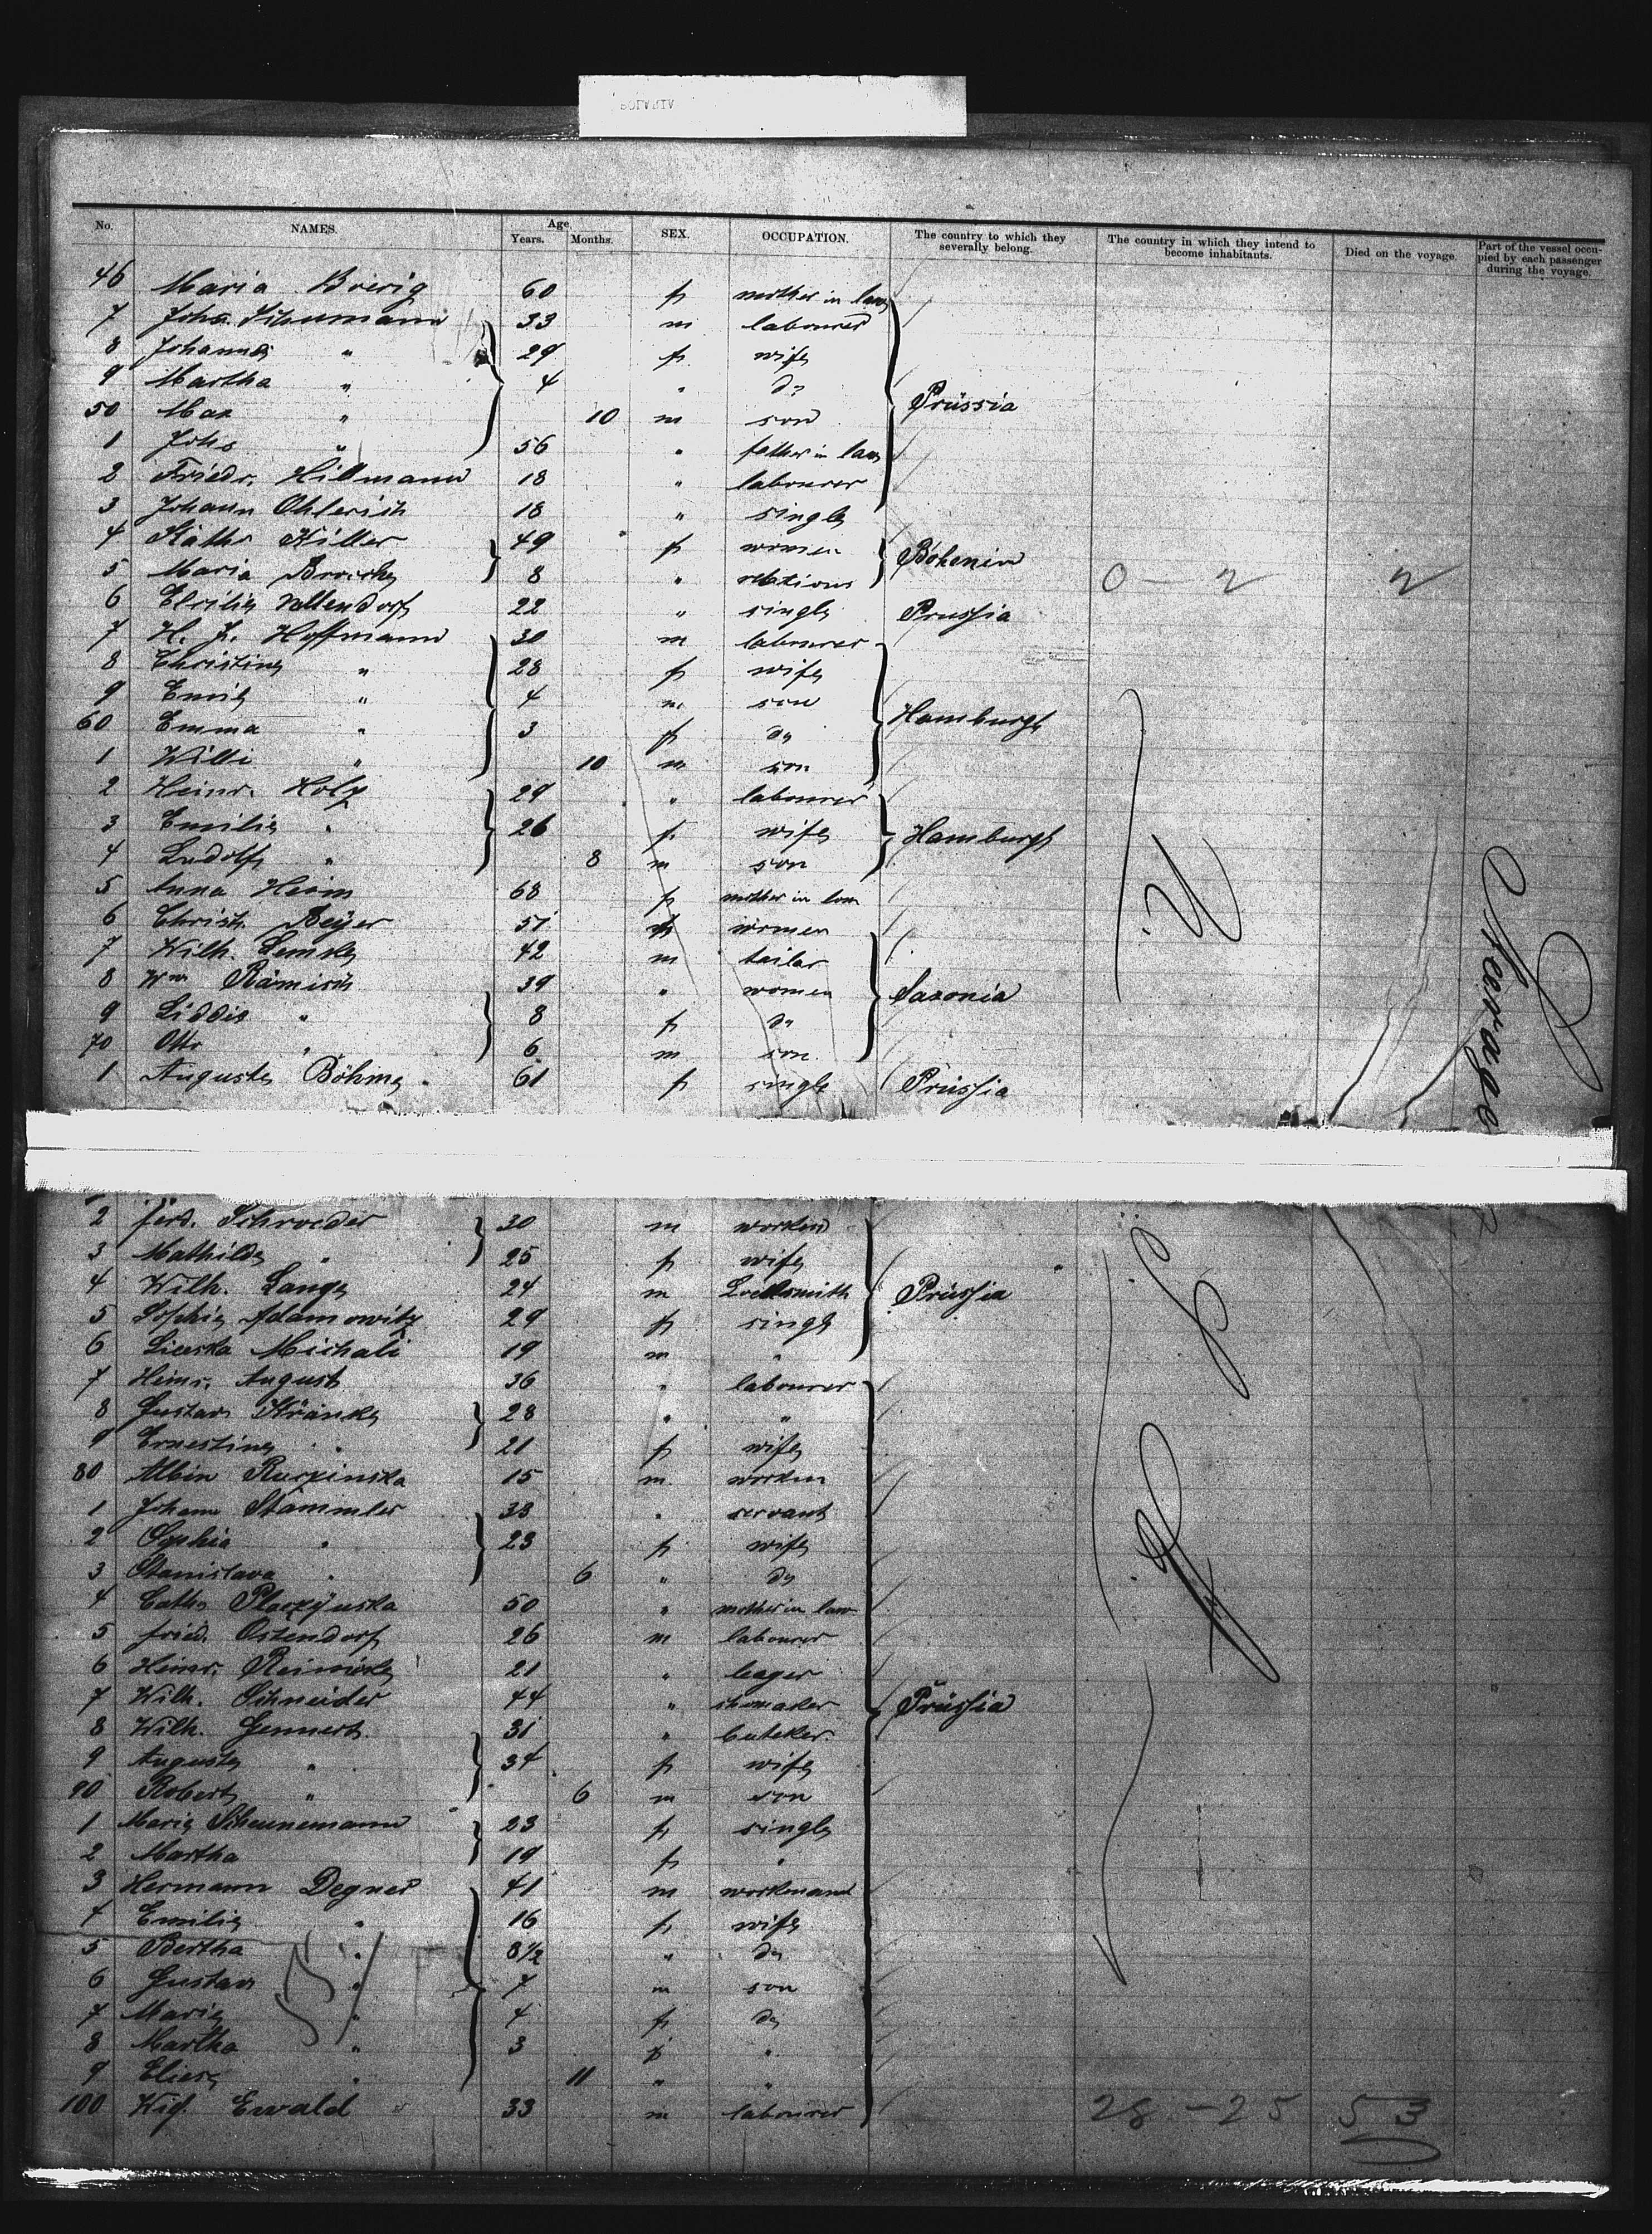 No. NAMES. Age Years. Months. SEX. OCCUPATION. The country to which they severally belong. The country in which they intend to become inhabitants. Died on the voyage. Part of the vessel occupied by each passenger during the voyage.
46 Maria 60 f mother in law
7 Johs. Schumann 33 m labourer
8 Johanna " 29 f wife
9 Martha " 4 " do Prüssia
50 Max " 10 m son
1 Johs " 56 " father in law
2 Friedr. Hillmann 18 " labourer
3 Johann Ohlerich 18 " single
4 Käthe Hiller 49 f women Bohemia
5 Maria 8 " relations 0 - 2 2
6 22 " single Prussia
7 H. J. Hoffmann 30 m labourer
8 Christine " 28 f wife
9 Emil " 4 m son Hamburgh
60 Emma " 3 f do
1 Willi " 10 m son
2 Heinr. Holz 29 " labourer
3 Emilie " 26 f wife Hamburgh
4 Ludolf " 8 m son
5 Anna Heim 68 f mother in law
6 Christ. Beyer 51 f women
7 Wilh. Lemke 42 m tailor
8 Wm Rämisch 39 " women Saxonia
9 Liddie " 8 f do
70 Otto " 6 m son
1 Auguste Böhme 61 f single Prüssia
Steerage
2 ferd. Schroeder 30 m worken
3 Mathilde " 25 f wife
4 Wilh. Lange 24 m Locksmith Prüssia
5 Sophie Adamowitz 29 f single
6 Michali 19 m "
7 Heinr. August 36 " labourer
8 Gustav Kränke 28 " "
9 Ernestine " 21 f wife
80 Albin Ruczinska 15 m worken
1 Johann Stammler 33 " servant
2 Sophia " 23 f wife
3 Stanislava " 6 " do
4 Cath. Placzynska 50 " mother in law
5 fried. Ostendorf 26 m labourer
6 Heinr. Reinicke 21 "
7 Wilh. Schneider 44 " shomaker Prüssia
8 Wilh. Gennert. 31 " butcker
9 Auguste " 34 f wife
90 Robert " 6 m son
1 Marie Scheunemann 23 f single
2 Martha 19 f "
3 Hermann Degner 41 m workmann
4 Emilie " 16 f wife
5 Bertha " 8½ " do
6 Gustav " 7 m son
7 Marie " 4 f do
8 Martha " 3 f "
9 Eliese " 11 " "
100 Ewald 33 m labourer 28 - 25 53